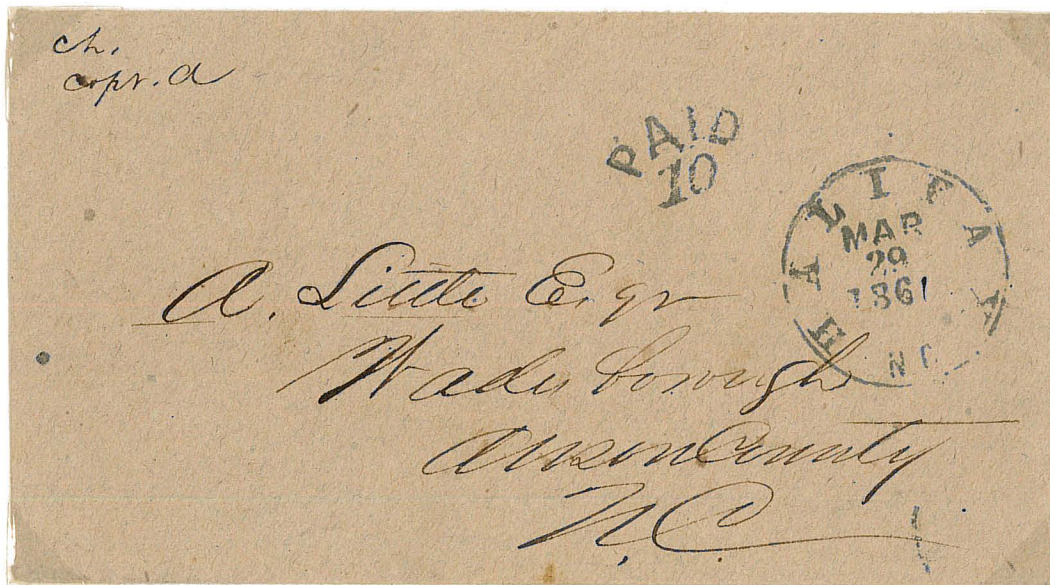 ch.
copr. a
PAID
10
HALIFAX
MAR
29
1861
N C
A. Little Esqr
Wadesborough
Anson County
N. C.